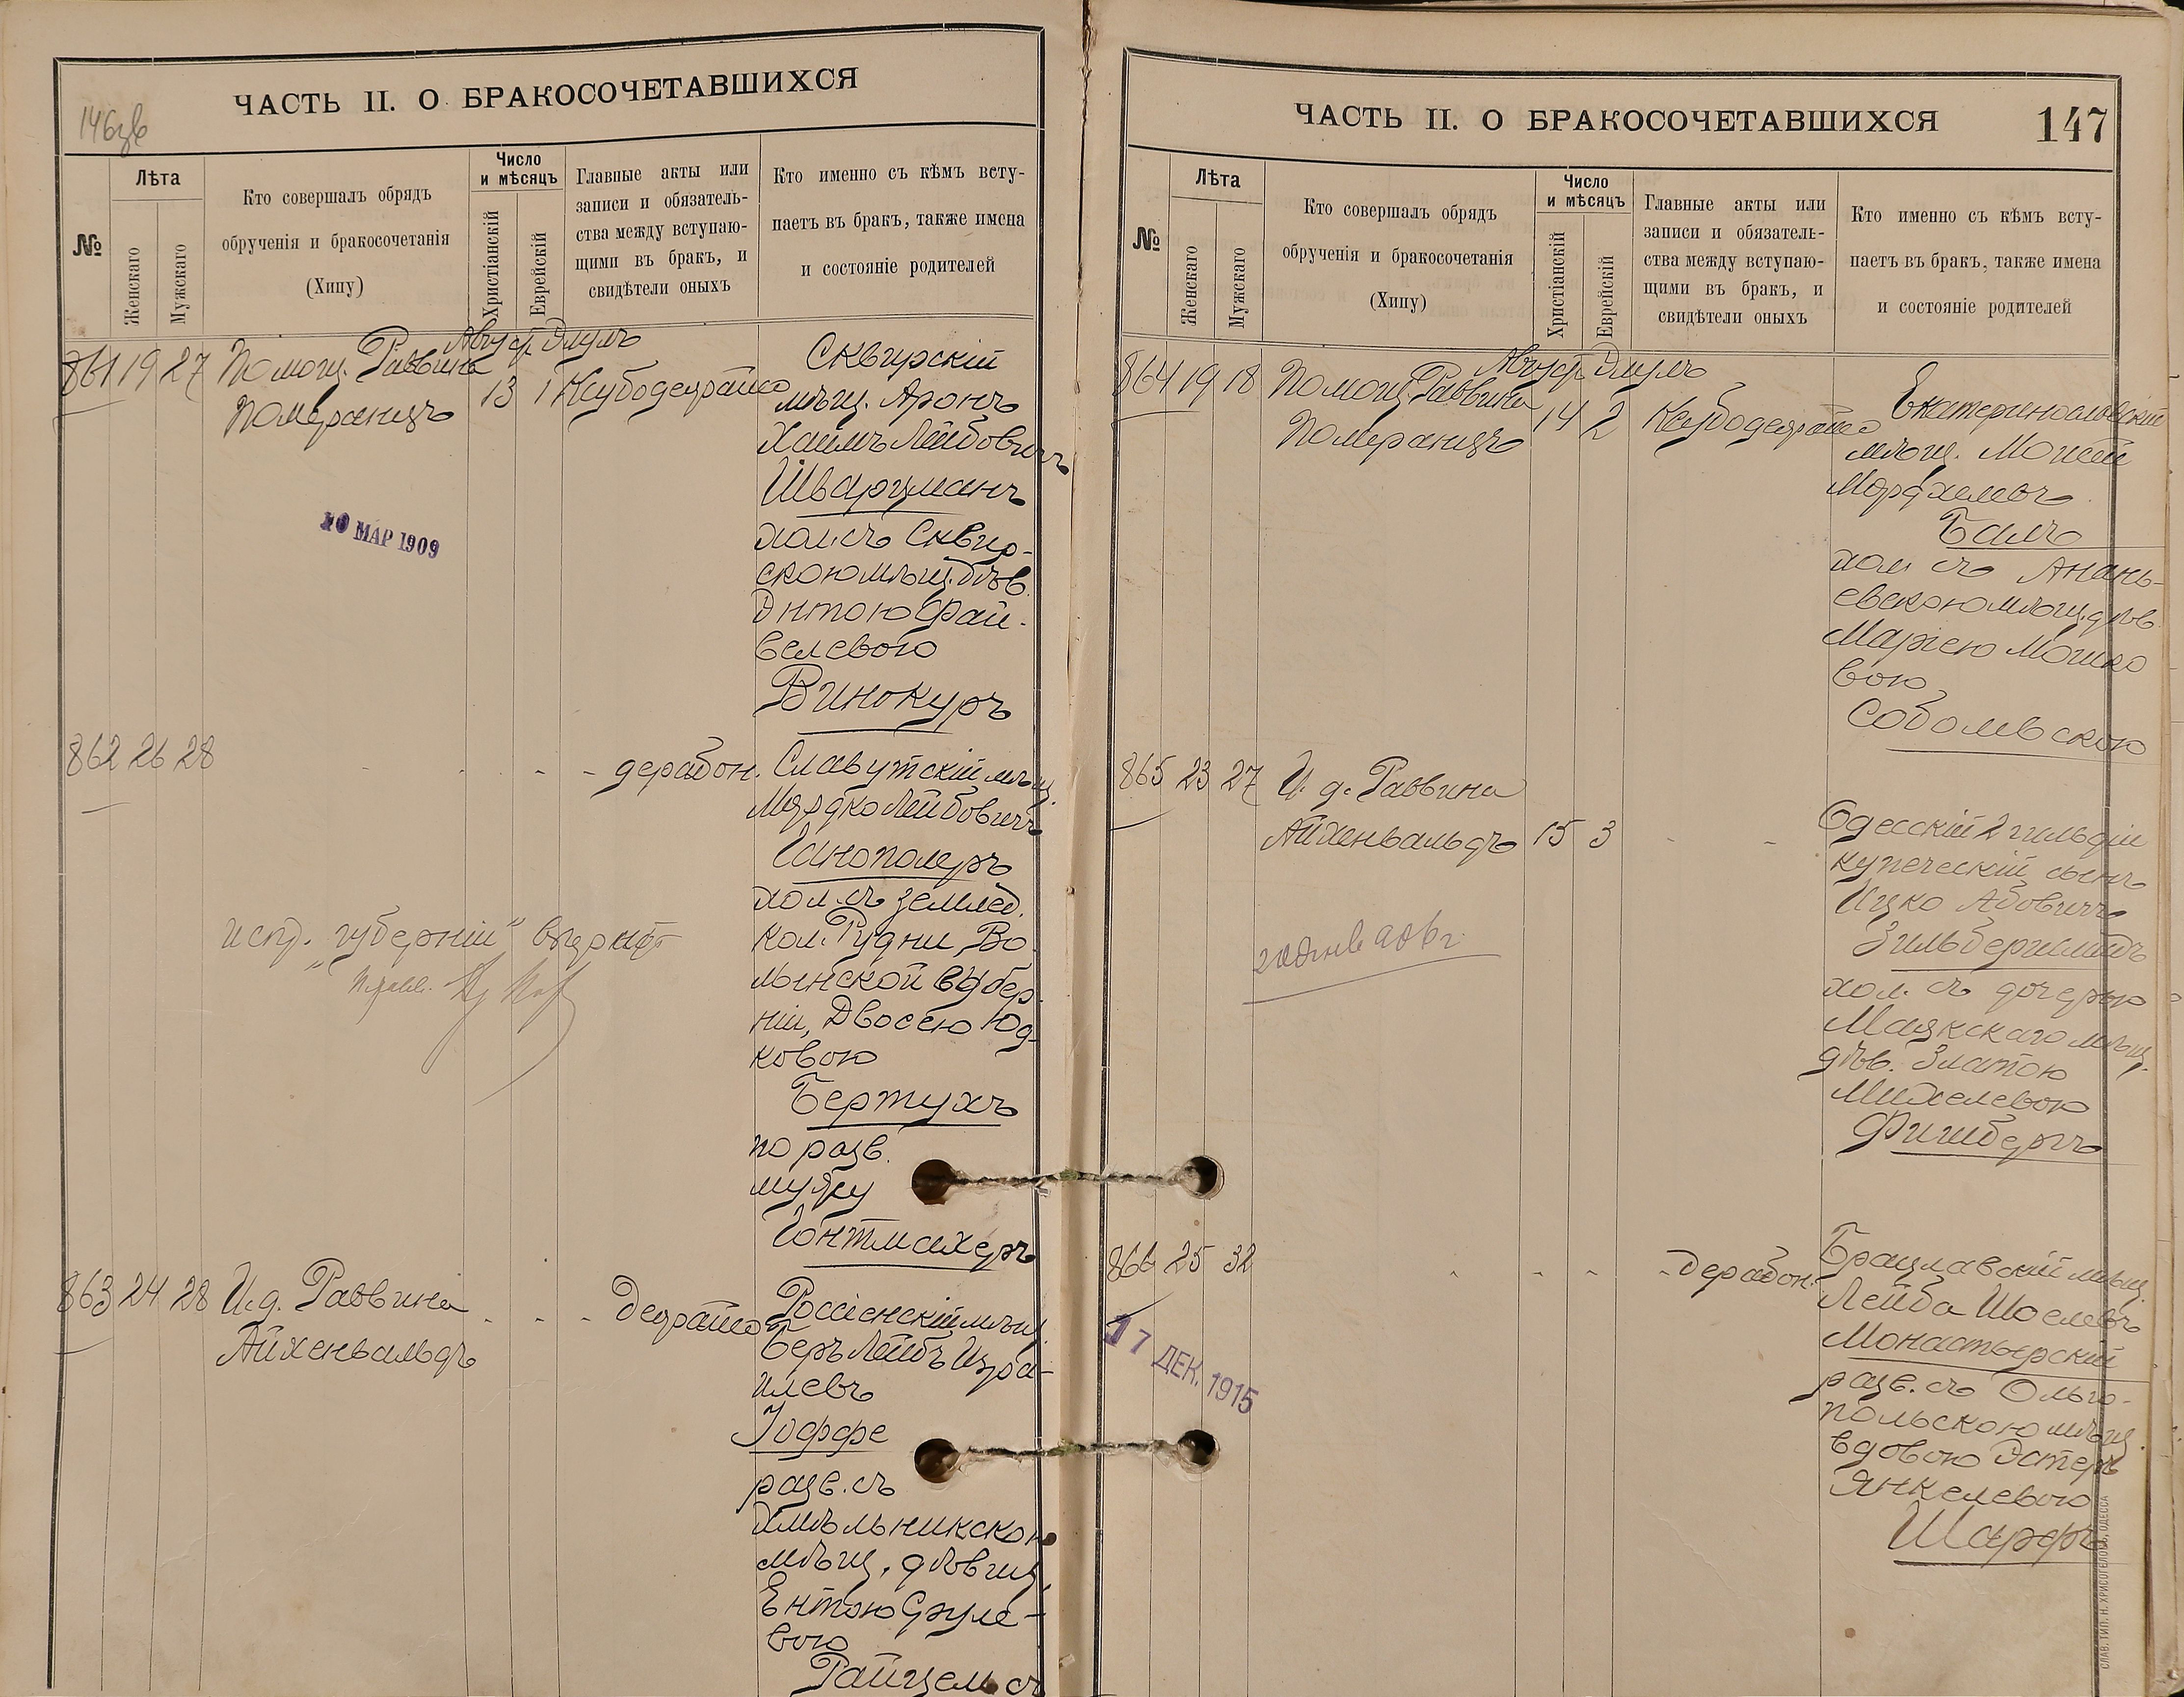 ЧАСТЬ II. О БРАКОСОЧЕТАВШИХСЯ
146
№
Лѣта
Женскаго
Мужскаго
Кто совершалъ обрядъ
обрученія и бракосочетанія
(Хипу)
Число
и мѣсяцъ
Христіанскій
Еврейскій
Главные акты или
записи и обязатель-
ства между вступаю-
щими въ бракъ, и
свидѣтели оныхъ
Кто именно съ кѣмъ всту-
паетъ въ бракъ, также имена
и состояніе родителей
861 19 27 Помощ. Раввина
Померанцъ
Авгус. Элулъ
13 1
Сквирскій
мѣщ. Аронъ
Хаимъ Лейбовичъ
Шварцманъ
хол. съ Сквир-
скою мѣщ. дѣв.
Энтою Фай-
велевою
Винокуръ
10 МАР 1909
862 26 28 - - - - дерабон.
Славутскій мѣщ.
Мордко Лейбовичъ
Ганополеръ
хол. съ землед.
кол. Рудни, Во-
лынской губер-
ніи, Двосею Юд-
ковою
Бертухъ
по разв.
мужу
Гонтмахеръ
испр. "губерніи"
863 24 28 И. д. Раввина
Айхенвальдъ
- - -
Россіенскій мѣщ.
Беръ Лейбъ Изра-
илевъ
Іоффе
разв. съ
Хмѣльникскою
мѣщ. дѣвиц.
Ентою Сруле-
вою
Райцельсъ
ЧАСТЬ II. О БРАКОСОЧЕТАВШИХСЯ
147
№
Лѣта
Женскаго
Мужскаго
Кто совершалъ обрядъ
обрученія и бракосочетанія
(Хипу)
Число
и мѣсяцъ
Христіанскій
Еврейскій
Главные акты или
записи и обязатель-
ства между вступаю-
щими въ бракъ, и
свидѣтели оныхъ
Кто именно съ кѣмъ всту-
паетъ въ бракъ, также имена
и состояніе родителей
864 19 18 Помощ. Раввина
Померанцъ
Авгус. Элулъ
14 2
Екатеринославскій
мѣщ. Моисей
Мордхелевъ
Балъ
хол. съ Анань-
евскою мѣщ. дѣв.
Маріею Мошко
вою
Соболевскою
865 23 27 И. д. Раввина
Айхенвальдъ 15 3 - -
Одесскій 2 гильдіи
купеческій сынъ
Ицко Абовичъ
Зильбершмидъ
хол. съ дочерью
Маякскаго мѣщ.
дѣв. Златою
Михелевою
Фишбергъ
866 25 32 - - - - дерабон.
Брацлавскій мѣщ.
Лейба Шоелевъ
Монастырскій
разв. съ Ольго-
польскою мѣщ.
вдовою Эстеръ
Янкелевою
Шарфъ
17 ДЕК. 1915
СЛАВ. ТИП. Н. ХРИСОГЕЛОСЪ, ОДЕССА